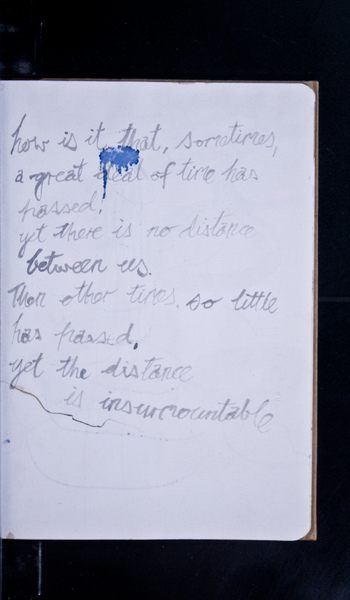 how is it that, sometimes,
a great deal of time has
passed,
yet there is no distance
between us.
Then other times so little
has passed,
yet the distance
is insurmountable